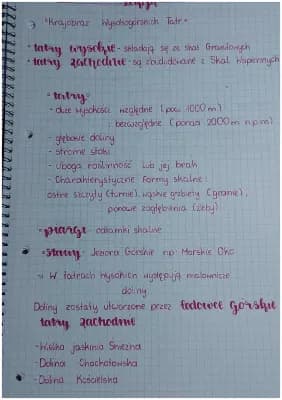 "Krajobraz Wysokogórskich Tatr."
• tatry wysokie - składają się ze skał Granitowych
• tatry zachodnie - są zbudowane z Skał Wapiennych
• tatry:
- duże wysokości względne (pow. 1000 m)
bezwzględne (ponad 2000m n.p.m)
- głębowe doliny
- strome stoki
- Uboga roślinność lub jej brak
- Charakterystyczne formy skalne:
ostre szczyty (turnie), wąskie grzbiety (granie),
pionowe zagłębienia (żleby)
• piargi - odłamki skalne
• stawy - Jeziora Górskie np. Morskie Oko
W tatrach wysokich występują malownicze
doliny
Doliny zostały utworzone przez lodowce górskie
tatry zachodnie
- Wielka jaskinia Śnieżna
- Dolina Chochołowska
- Dolina Kościeliska